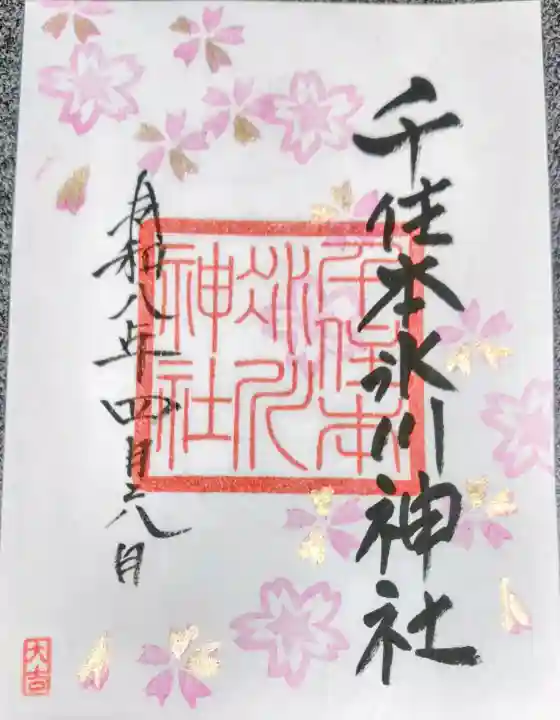 千住本氷川神社
千住本
氷川
神社
令和八年四月二八日
大吉